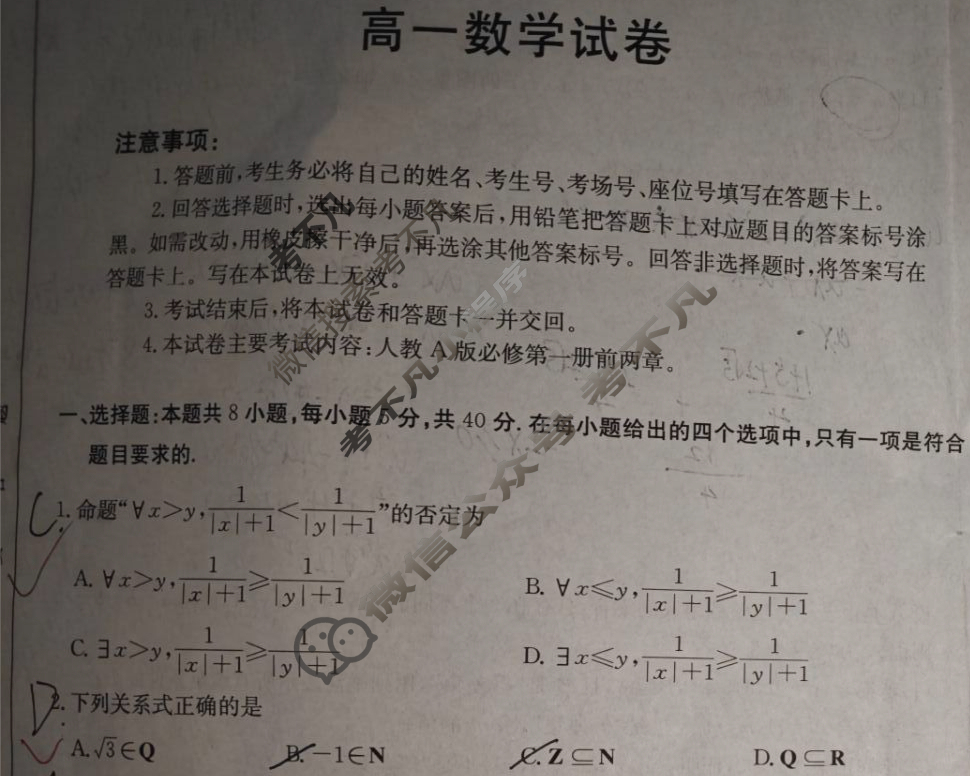 高一数学试卷
注意事项:
1.答题前,考生务必将自己的姓名、考生号、考场号、座位号填写在答题卡上。
2.回答选择题时,选出每小题答案后,用铅笔把答题卡上对应题目的答案标号涂
黑。如需改动,用橡皮擦干净后,再选涂其他答案标号。回答非选择题时,将答案写在
答题卡上。写在本试卷上无效。
3.考试结束后,将本试卷和答题卡一并交回。
4.本试卷主要考试内容:人教A版必修第一册前两章。
一、选择题:本题共8小题,每小题5分,共40分.在每小题给出的四个选项中,只有一项是符合
题目要求的.
C
1.命题“∀x>y,1/(|x|+1)<1/(|y|+1)”的否定为
A.∀x>y,1/(|x|+1)≥1/(|y|+1) B.∀x≤y,1/(|x|+1)≥1/(|y|+1)
C.∃x>y,1/(|x|+1)≥1/(|y|+1) D.∃x≤y,1/(|x|+1)≥1/(|y|+1)
D
2.下列关系式正确的是
A.√3∈Q B.-1∈N C.Z⊆N D.Q⊆R
考不凡
微信搜索考不凡
考不凡小程序
微信公众号考不凡